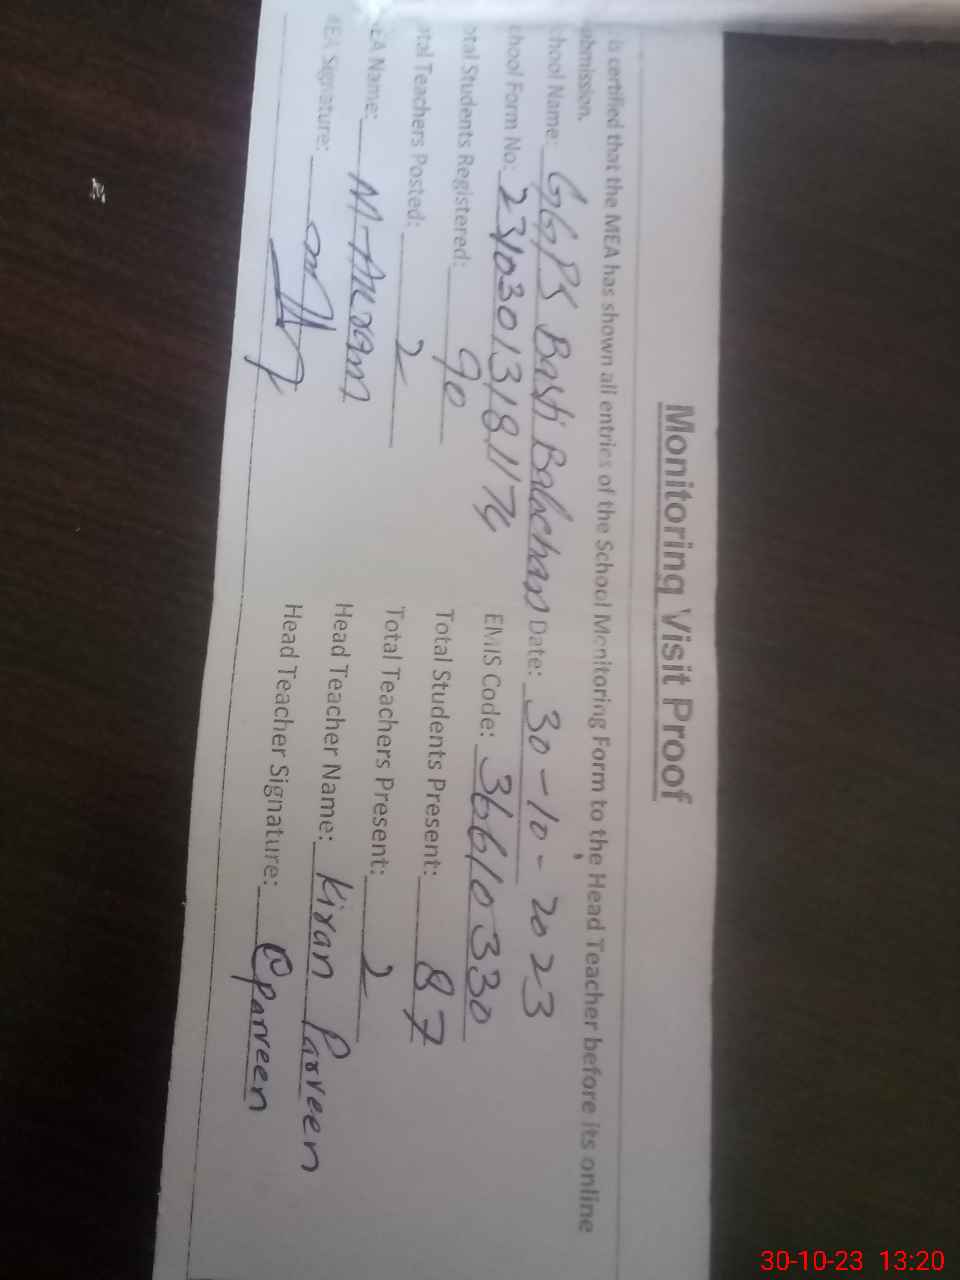 Monitoring Visit Proof
is certified that the MEA has shown all entries of the School Monitoring Form to the Head Teacher before its online
ubmission.
chool Name: GGPS Basti Balochan Date: 30-10-2023
chool Form No: EMIS Code: 36610330
otal Students Registered: 90 Total Students Present: 87
otal Teachers Posted: 2 Total Teachers Present: 2
EA Name: M-Akram Head Teacher Name: Kiran Parveen
MEA Signature: Head Teacher Signature: Parveen
30-10-23 13:20